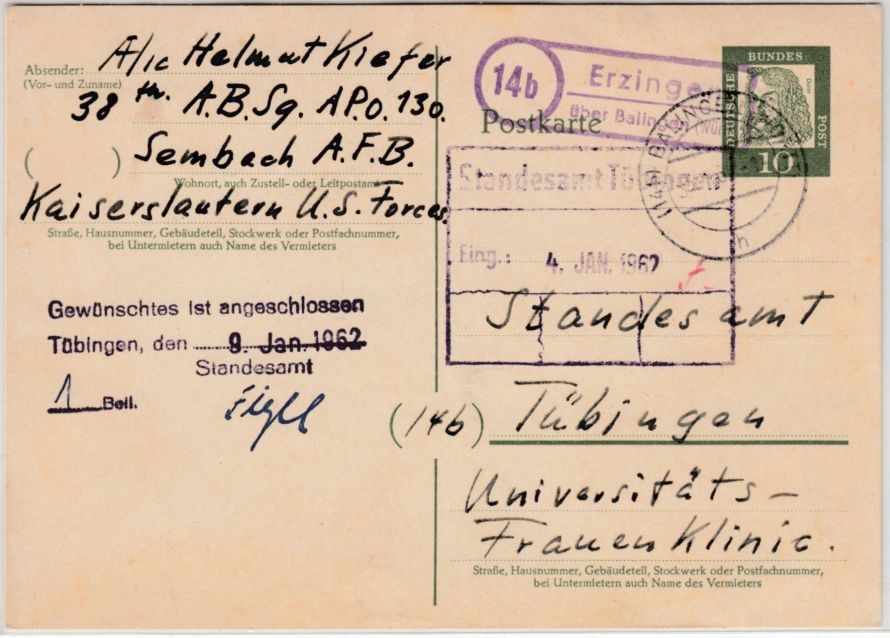 Absender:
(Vor- und Zuname)
A/1c Helmut Kiefer
38 th. A.B.Sg. A.P.O. 130.
( ) Sembach A.F.B.
Wohnort, auch Zustell- oder Leitpostamt
Kaiserslautern U.S. Forces.
Straße, Hausnummer, Gebäudeteil, Stockwerk oder Postfachnummer,
bei Untermietern auch Name des Vermieters
Gewünschtes ist angeschlossen
Tübingen, den 9. Jan. 1962
Standesamt
1 Beil.
14b
Erzingen
über Balingen (Wür
Postkarte
DEUTSCHE
BUNDES
POST
10
Dürer
BALINGEN
Standesamt Tübingen
Eing.: 4. JAN. 1962
Standesamt
(14b) Tübingen
Universitäts-
Frauen Klinic.
Straße, Hausnummer, Gebäudeteil, Stockwerk oder Postfachnummer,
bei Untermietern auch Name des Vermieters